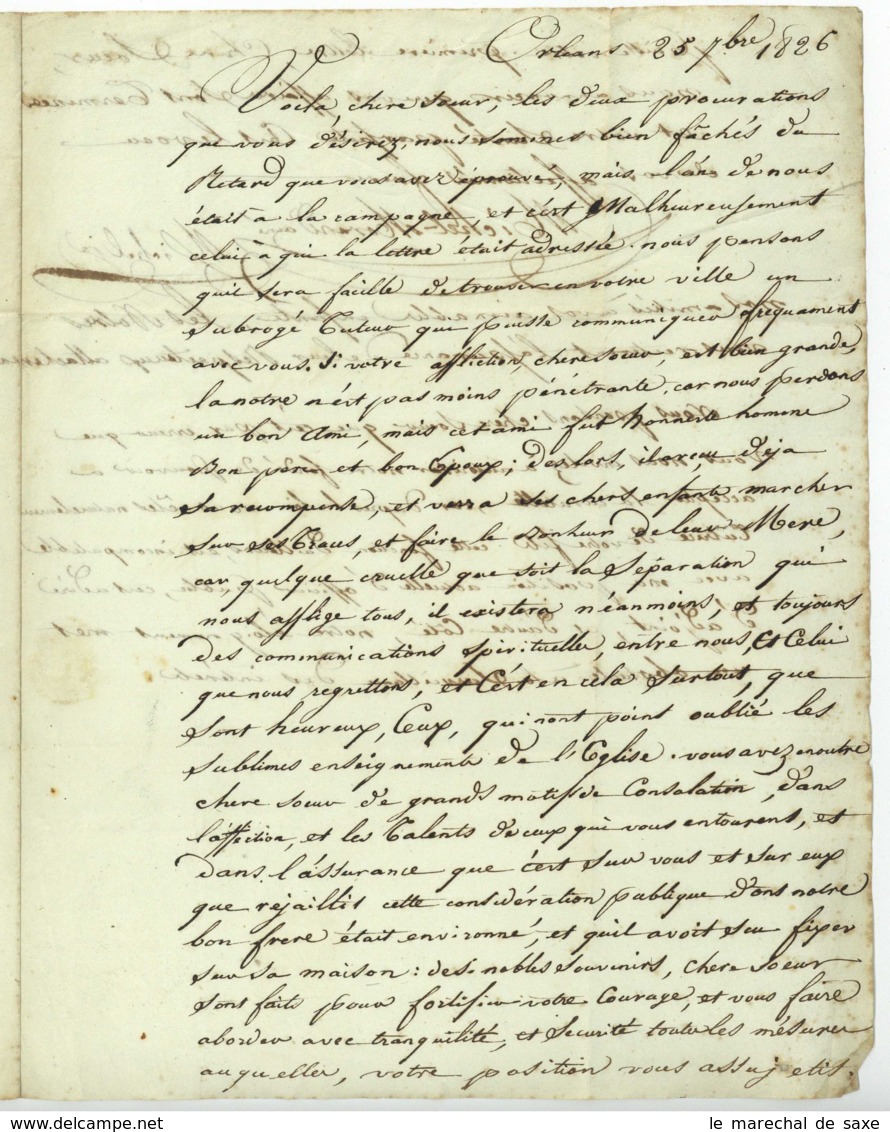 Orleans 25 7bre 1826
Voila, chere soeur, les deux procurations
que vous désirez, nous sommes bien fâchés du
Retard que vous avez éprouvé, mais l'un de nous
était à la campagne, et c'est Malheureusement
celui à qui la lettre était adressée. nous pensons
quil sera facille de trouver en votre ville un
subrogé Tuteur que puisse communiquer frequament
avec vous. Si votre affliction, chere soeur, est bien grande,
la notre n'est pas moins pénétrante, car nous perdons
un bon Ami, mais cet ami fut honneste homme
Bon pere et bon Epoux; des lors, il a reçu déja
sa recompense, et verra ses chers enfants marcher
sur ses Traces, et faire le Bonheur de leur Mere,
car quelque cruelle que soit la séparation qui
nous afflige tous, il existera néanmoins, et toujours
des communications spirituelles, entre nous, et Celui
que nous regrettons, et C'est en cela surtout, que
sont heureux, Ceux, qui n'ont point oublié les
sublimes enseignements de l'Eglise. vous avez enoutre
chere soeur de grands motifs de Consolation, dans
l'affection, et les Talents de ceux qui vous entourent, et
dans l'assurance que c'est sur vous et sur eux
que rejaillit cette considération publique dont notre
bon frere était environné, et quil avoit su fixer
sur sa maison: des nobles souvenirs, chere soeur
sont faits pour fortifier votre Courage, et vous faire
aborder avec tranquilité, et Securité toutes les mésures
auquelles, votre position vous assujetis.
le marechal de saxe